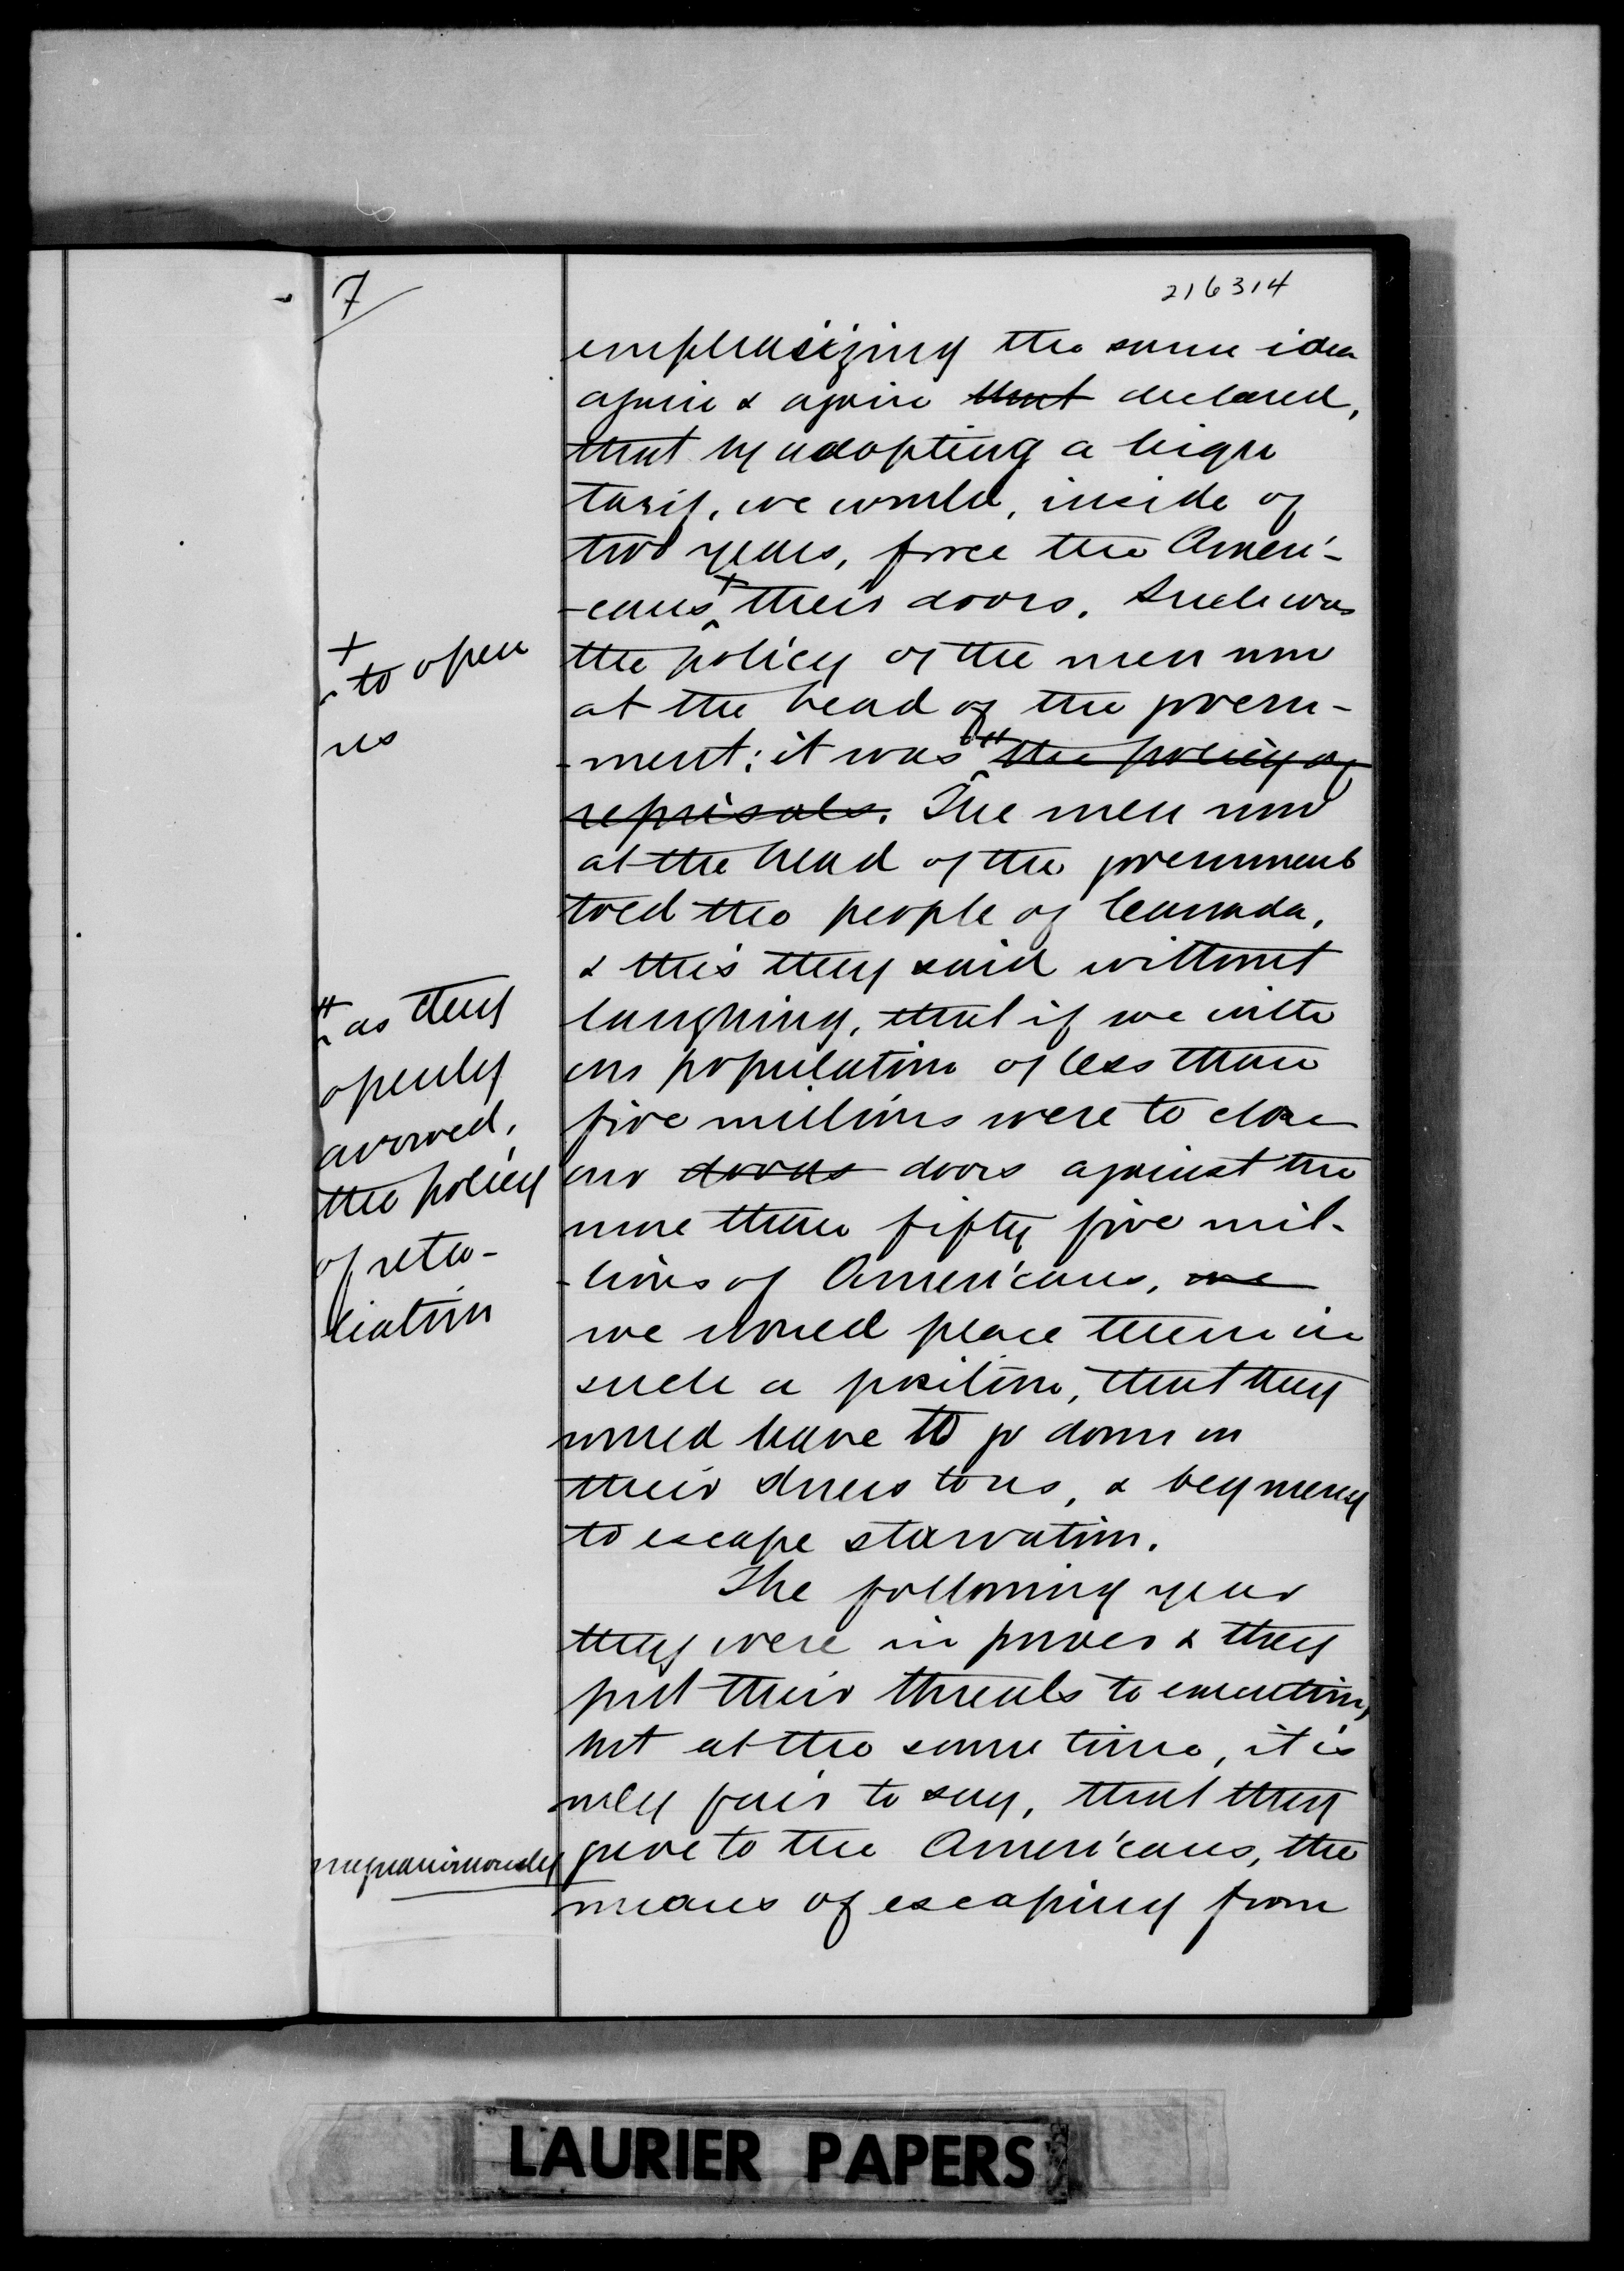 7
216314
emphasizing the same idea
again & again that declared,
that by adopting a high
tarif, we would, inside of
two years, force the Ameri-
-cans + their doors. Such was
+ to open
the policy of the men now
at the head of the govern-
us
-ment: it was " the policy of
reprisals. The men now
at the head of the government
told the people of Canada,
& this they said without
" as they
laughing, that if we with
openly
our population of less than
avowed,
five millions were to close
the policy
our doors doors against the
more than fifty five mil-
of reta-
-lions of Americans, we
liation
we would place them in
such a position, that they
would have to go down on
their knees to us, & beg mercy
to escape starvation.
The following year
they were in power & they
put their threats to execution,
but at the same time, it is
only fair to say, that they
magnanimously
gave to the Americans, the
means of escaping from
LAURIER PAPERS